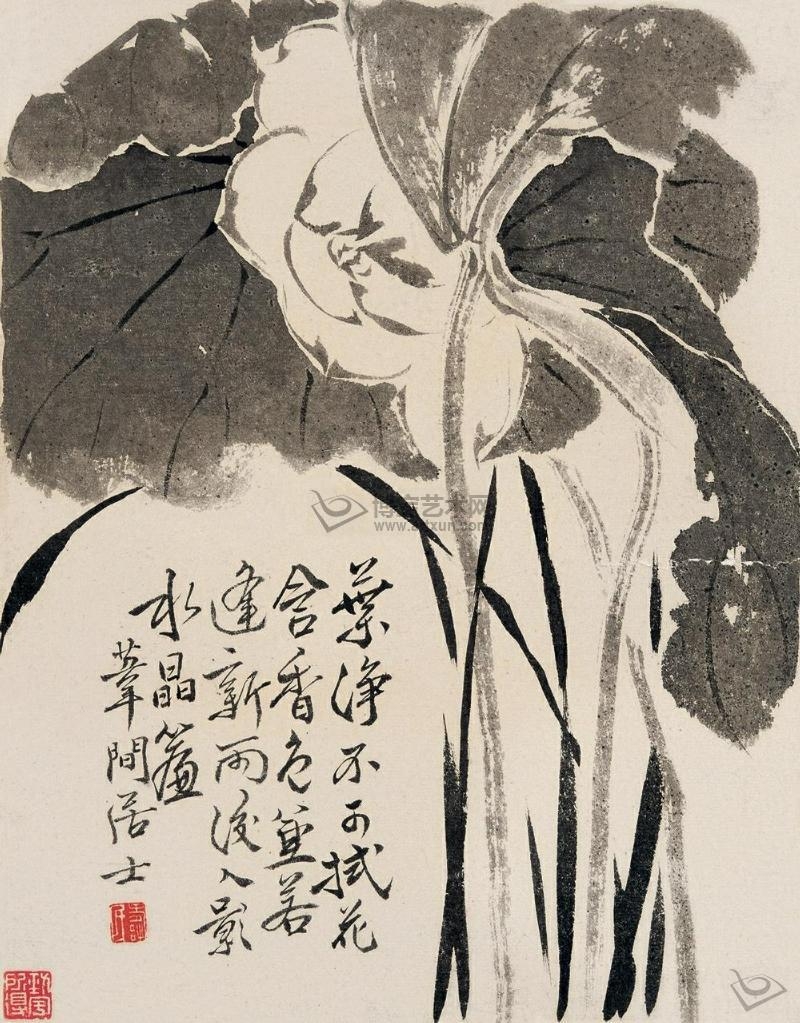 葉淨不可拭花
含香色並若
逢新雨後人影
水晶簾
葦間居士
博寶艺术网
www.artxun.com